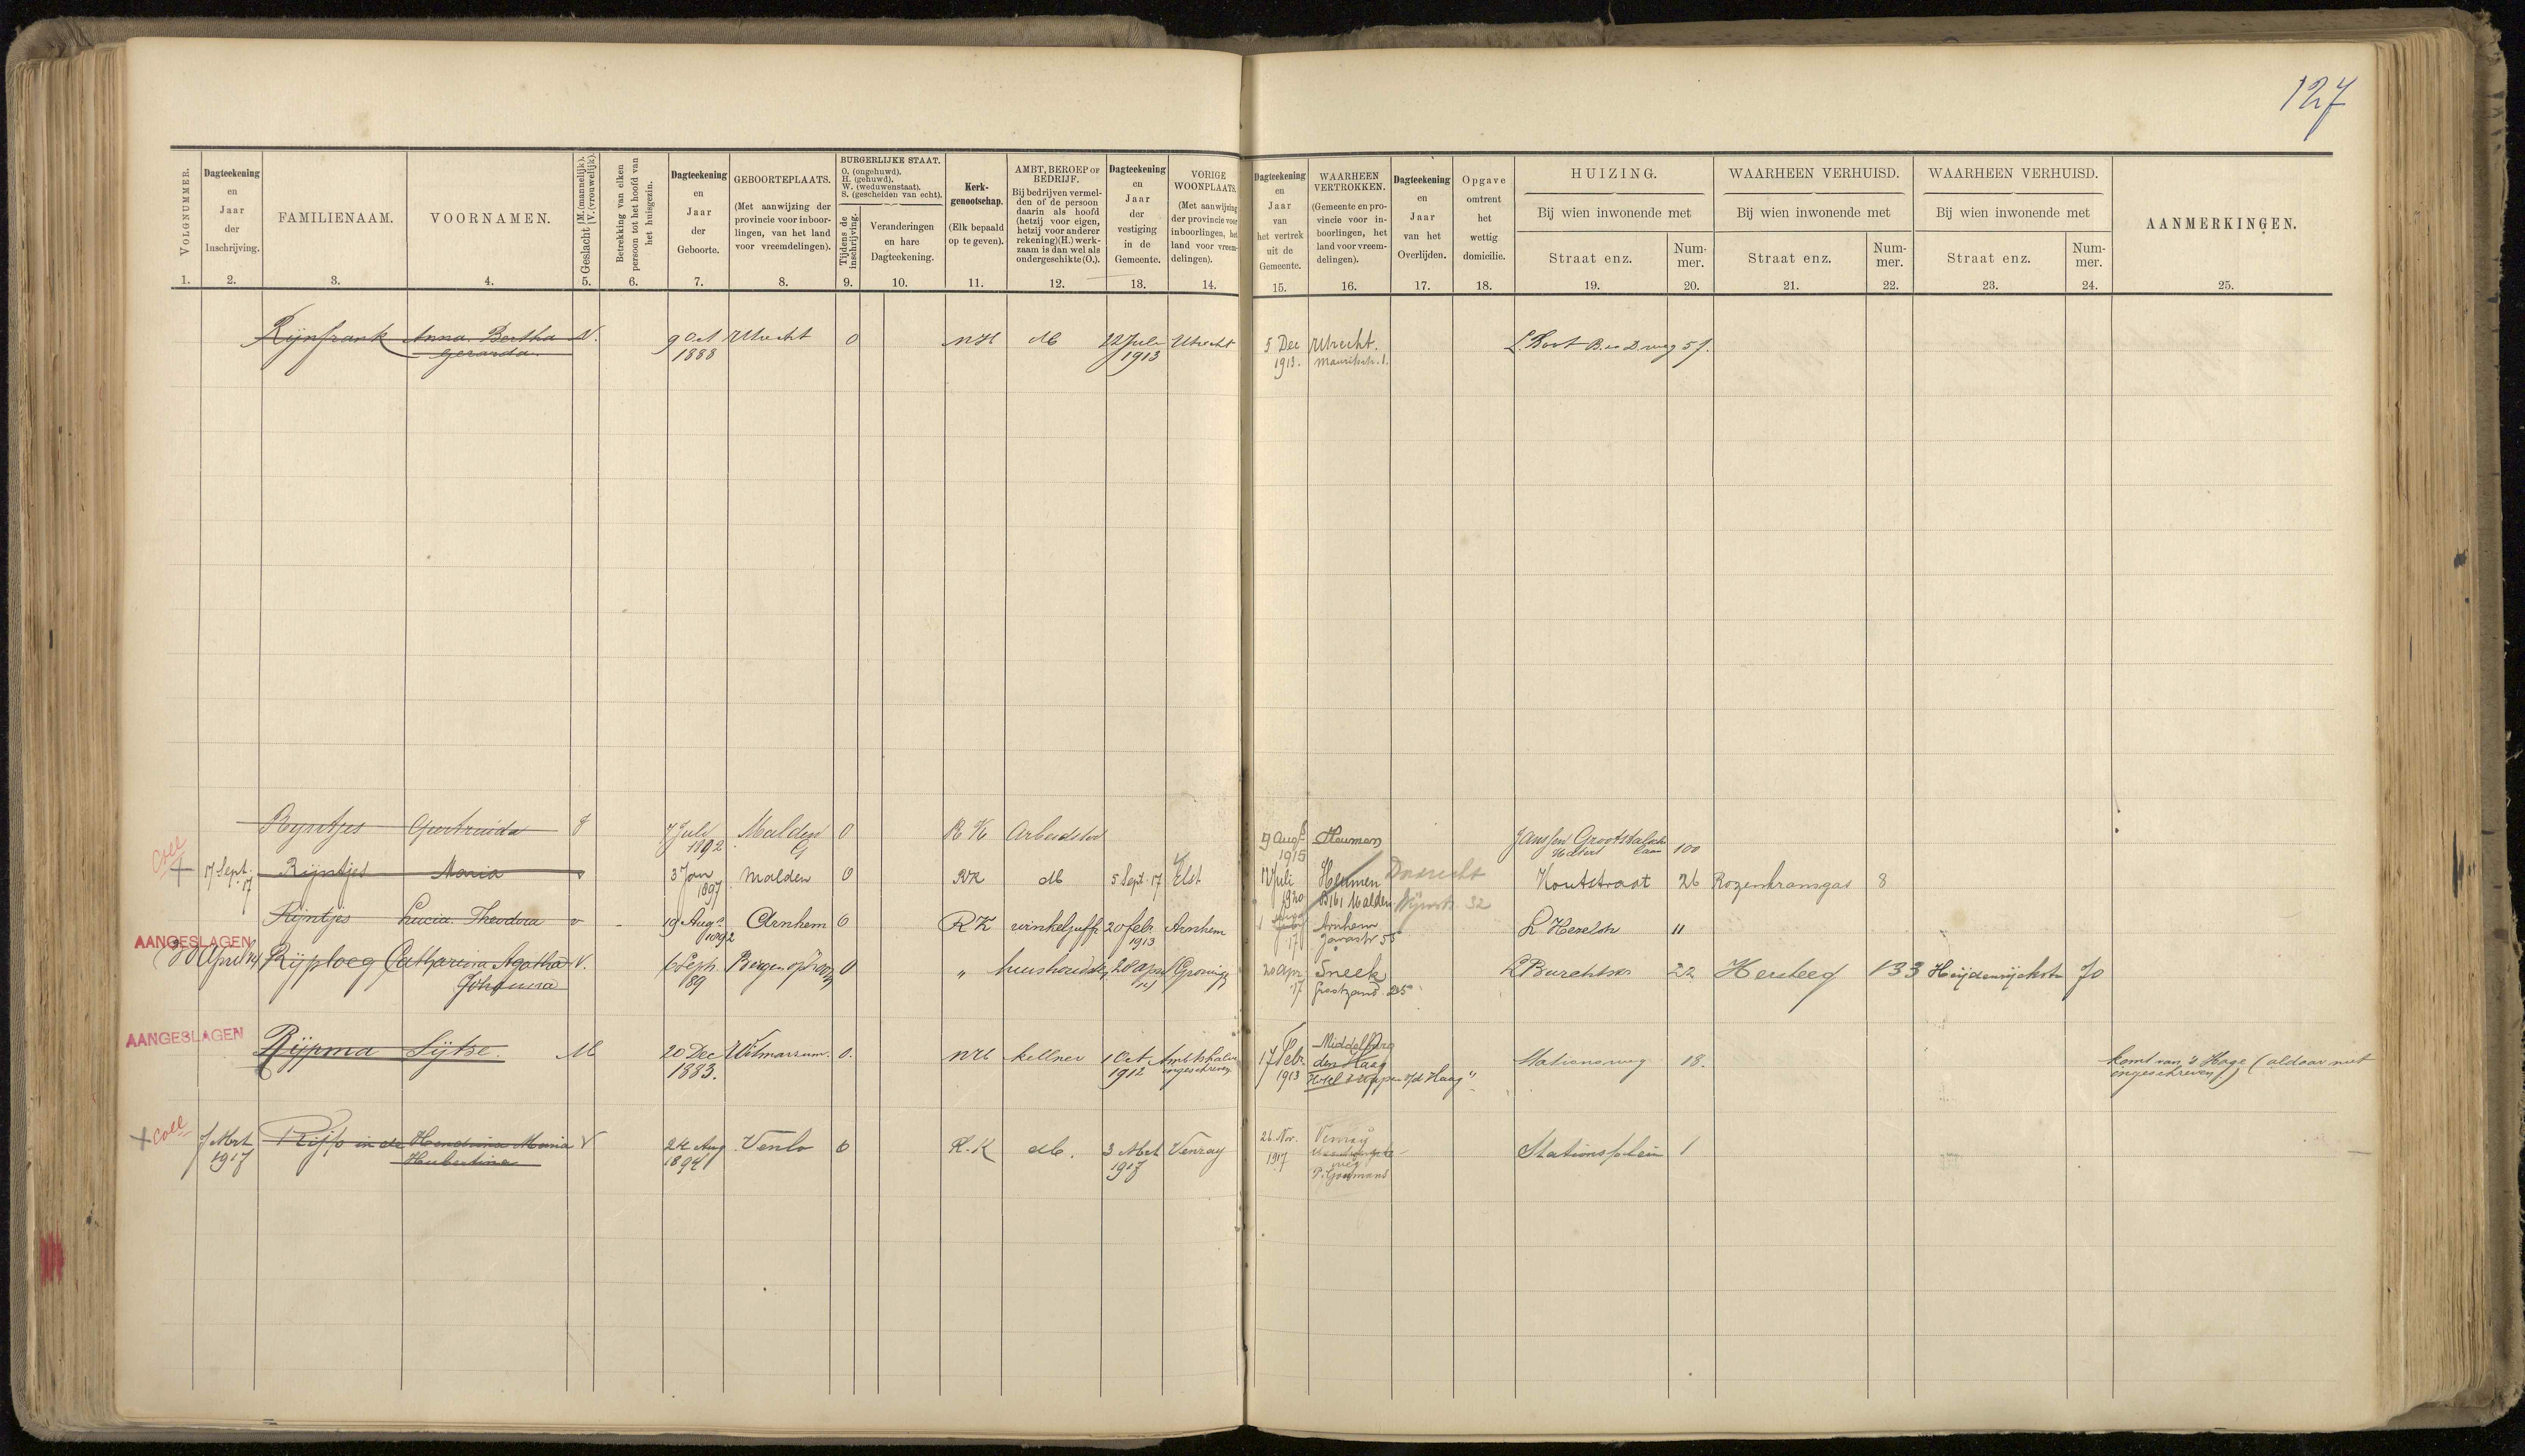 127
VOLGNUMMER.
1.
Dagteekening
en
Jaar
der
Inschrijving.
2.
FAMILIENAAM.
3.
VOORNAMEN.
4.
Geslacht {M. (mannelijk). V. (vrouwelijk).
5.
Betrekking van elken
persoon tot het hoofd van
het huisgezin.
6.
Dagteekening
en
Jaar
der
Geboorte.
7.
GEBOORTEPLAATS.
(Met aanwijzing der
provincie voor inboor-
lingen, van het land
voor vreemdelingen).
8.
BURGERLIJKE STAAT.
O. (ongehuwd).
H. (gehuwd).
W. (weduwenstaat).
S. (gescheiden van echt).
Tijdens de
inschrijving.
9.
Veranderingen
en hare
Dagteekening.
10.
Kerk-
genootschap.
(Elk bepaald
op te geven).
11.
AMBT, BEROEP OF
BEDRIJF.
Bij bedrijven vermel-
den of de persoon
daarin als hoofd
(hetzij voor eigen,
hetzij voor anderer
rekening)(H.) werk-
zaam is dan wel als
ondergeschikte (O.).
12.
Dagteekening
en
Jaar
der
vestiging
in de
Gemeente.
13.
VORIGE
WOONPLAATS.
(Met aanwijzing
der provincie voor
inboorlingen, het
land voor vreem-
delingen).
14.
Dagteekening
en
Jaar
van
het vertrek
uit de
Gemeente.
15.
WAARHEEN
VERTROKKEN.
(Gemeente en pro-
vincie voor in-
boorlingen, het
land voor vreem-
delingen).
16.
Dagteekening
en
Jaar
van het
Overlijden.
17.
Opgave
omtrent
het
wettig
domicilie.
18.
HUIZING.
Bij wien inwonende met
Straat enz.
19.
Num-
mer.
20.
WAARHEEN VERHUISD.
Bij wien inwonende met
Straat enz.
21.
Num-
mer.
22.
WAARHEEN VERHUISD.
Bij wien inwonende met
Straat enz.
23.
Num-
mer.
24.
AANMERKINGEN.
25.
Rijnfrank Anna Bertha V. 9 Oct Utrecht O NH db 22 Juli Utrecht 5 Dec Utrecht.
Gerarda 1888 1913 1913. Mauritsstr. 1.
Rijntjes Gertruida 7 Juli Malden O RK 19 Aug Heumen Janssen
1892 G 1915 Hatert laan 100
Coll
17 Sept. Rijntjes Maria v 3 Jan Malden O RK db 5 Sept 17 Elst Juli Heumen Dordrecht Houtstraat 26 Rozenkransgas 8
17 1897 1920 B161 Malden 32
Rijntjes Lucia Theodora v 19 Aug Arnhem O RK winkeljuffr 20 febr Arnhem Arnhem 11
1892 1913 17 Javastr 55
AANGESLAGEN
30 April Rijploeg Catharina Agatha V. Sept. Bergen op Zoom O " 20 apr 20 apr Sneek 22 Hersteeg 133 Heijdenrijckstr 70
Johanna 89 17 Grootzand 25
AANGESLAGEN
Rijpma Sijtse. M 20 Dec Witmarsum. O. NH kellner 1 Oct Ambtshalve 17 Febr. Middelburg Stationsweg 18. komt van 's Hage (aldaar niet
1883. 1912 ingeschreven 1913 den Haag ingeschreven)
Hotel
Coll
7 Mrt Rijp in de Hendrina Maria V 24 Aug Venlo O R.K db. 3 Mrt Venray 26 Nov. Venray Stationsplein 1
1917 Hubertina 1894 1917 1917